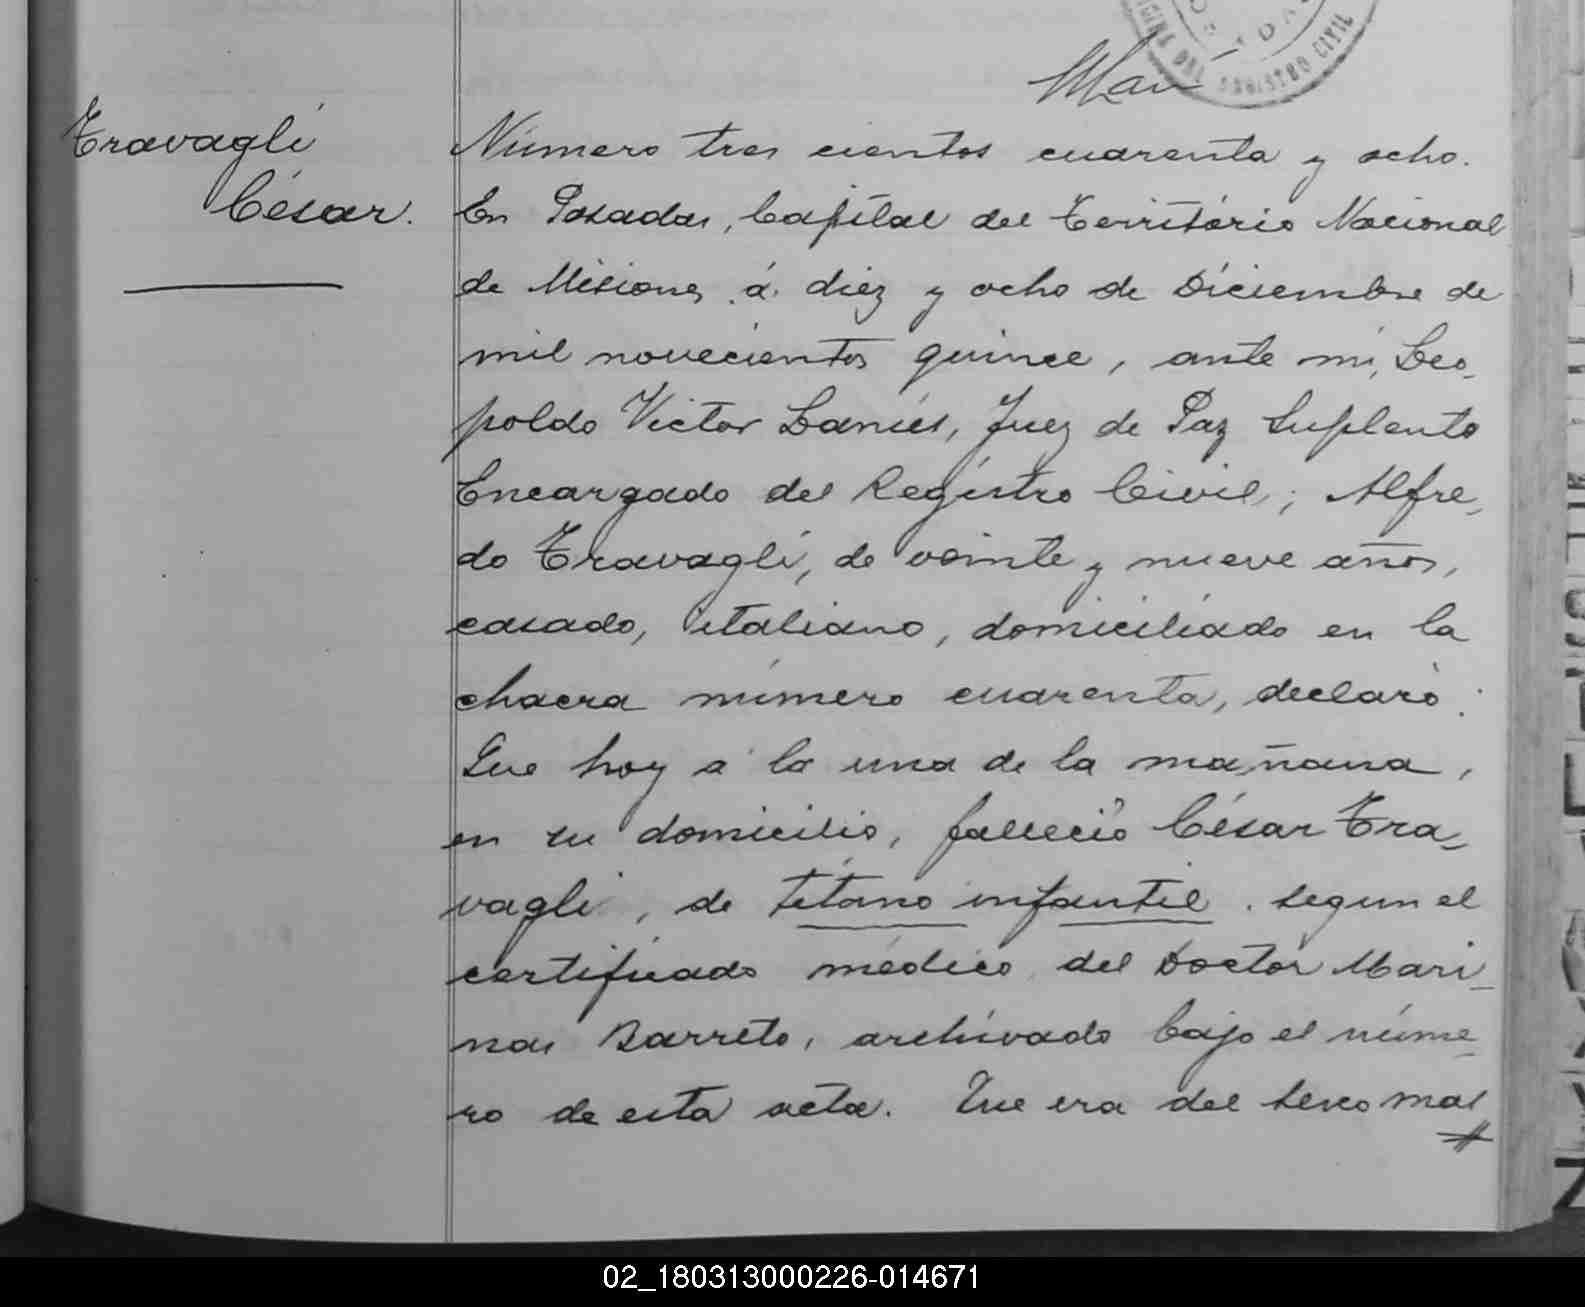 OFICINA DEL REGISTRO CIVIL
Travagli
César.
Número tres cientos cuarenta y ocho.
En Posadas, Capital del Território Nacional
de Misiones, á diez y ocho de Diciembre de
mil novecientos quince, ante mi, Leo-
poldo Victor Lanús, Juez de Paz Suplente
Encargado del Registro Civil; Alfre-
do Travagli, de veinte y nueve años,
casado, italiano, domiciliado en la
chacra número cuarenta, declaró:
Que hoy a la una de la mañana,
en su domicilio, falleció César Tra-
vagli, de tétano infantil. segun el
certificado médico del Doctor Mari-
nas Barreto, archivado bajo el núme-
ro de esta acta. Que era del sexo mas
02_180313000226-014671